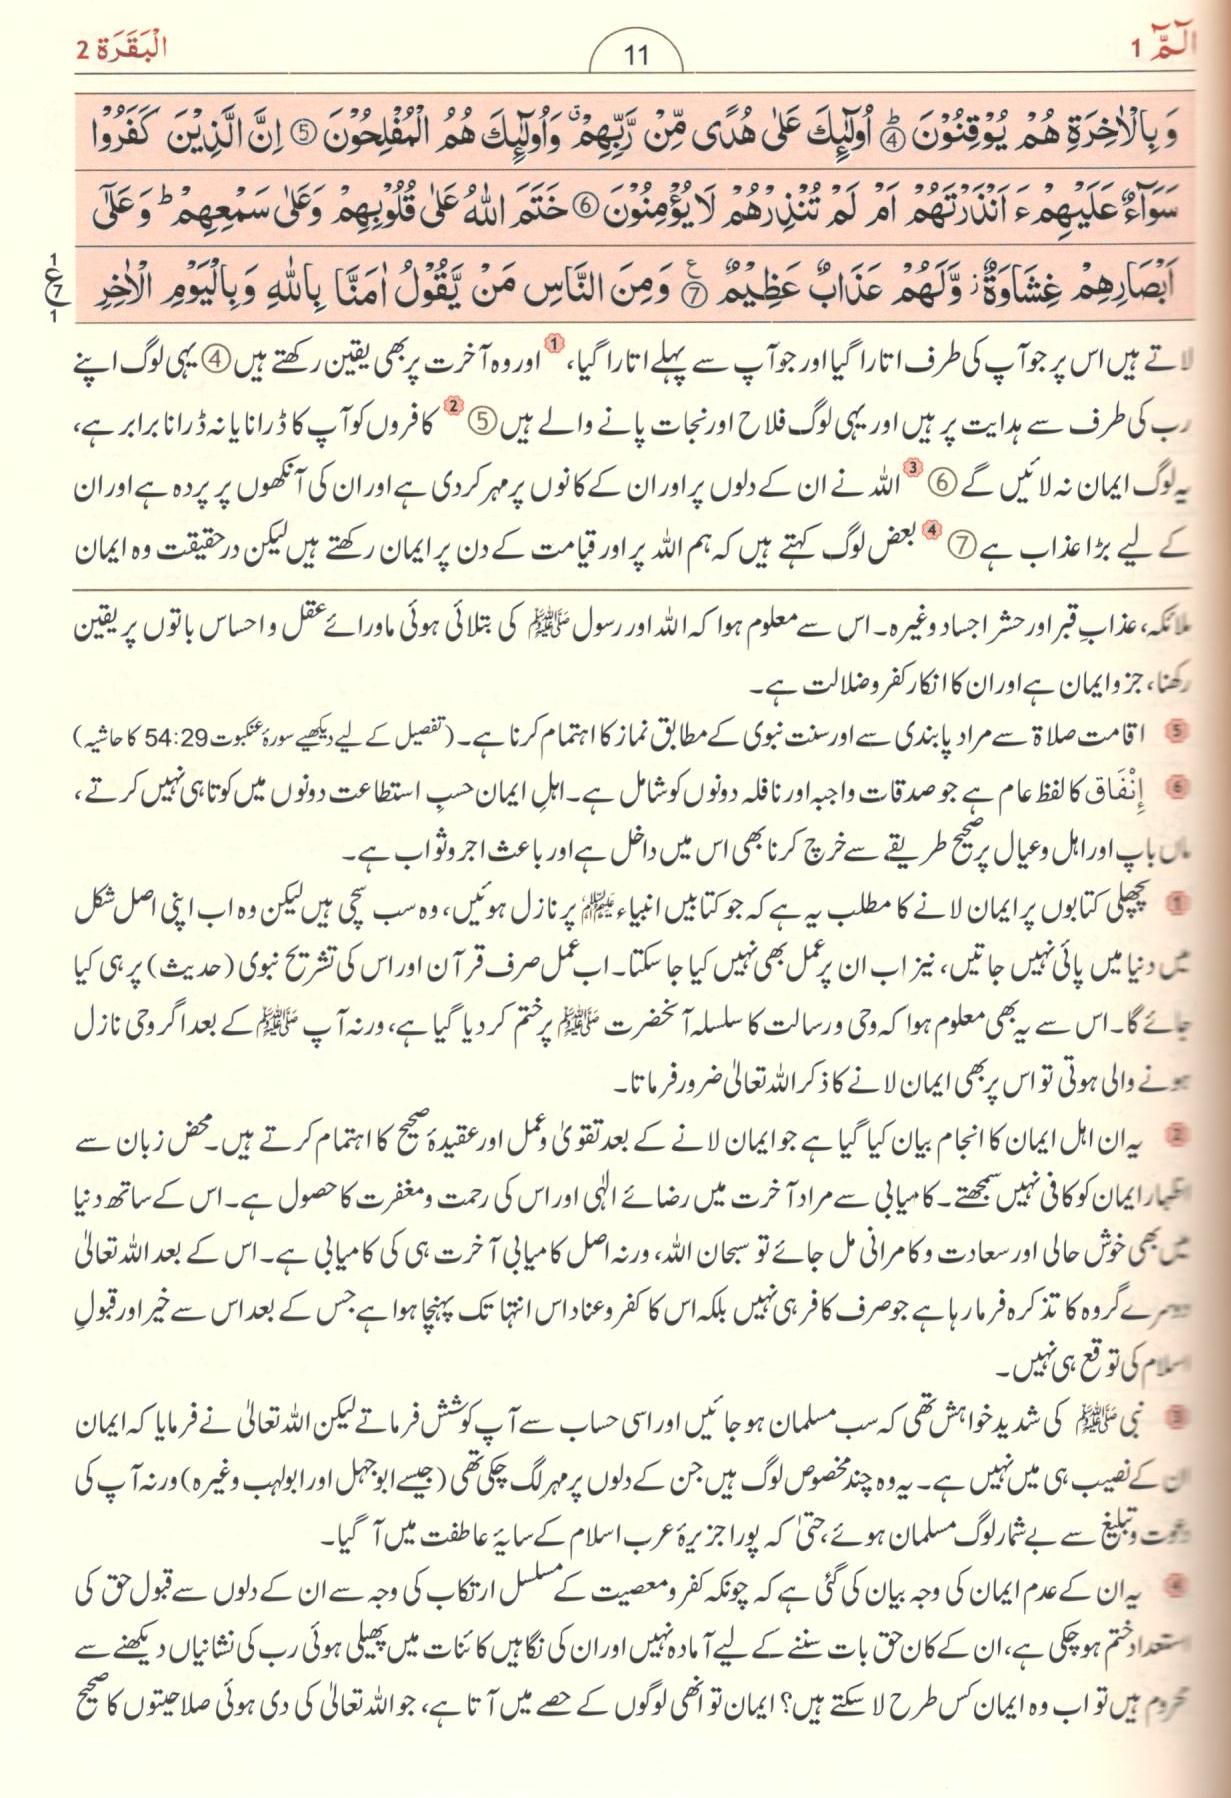 الٓمّٓ 1
11
الْبَقَرَة 2
وَ بِالْاٰخِرَةِ هُمْ یُوْقِنُوْنَ ④ اُولٰٓىِٕكَ عَلٰی هُدًی مِّنْ رَّبِّهِمْ ۗ وَاُولٰٓىِٕكَ هُمُ الْمُفْلِحُوْنَ ⑤ اِنَّ الَّذِیْنَ كَفَرُوْا
سَوَآءٌ عَلَیْهِمْ ءَ اَنْذَرْتَهُمْ اَمْ لَمْ تُنْذِرْهُمْ لَا یُؤْمِنُوْنَ ⑥ خَتَمَ اللّٰهُ عَلٰی قُلُوْبِهِمْ وَعَلٰی سَمْعِهِمْ ؕ وَ عَلٰۤی
اَبْصَارِهِمْ غِشَاوَةٌ ؗ وَّلَهُمْ عَذَابٌ عَظِیْمٌ ⑦ ع وَمِنَ النَّاسِ مَنْ یَّقُوْلُ اٰمَنَّا بِاللّٰهِ وَبِالْیَوْمِ الْاٰخِرِ
1
ع 7
1
لاتے ہیں اس پر جو آپ کی طرف اتارا گیا اور جو آپ سے پہلے اتارا گیا، 1 اور وہ آخرت پر بھی یقین رکھتے ہیں ④ یہی لوگ اپنے
رب کی طرف سے ہدایت پر ہیں اور یہی لوگ فلاح اور نجات پانے والے ہیں ⑤ 2 کافروں کو آپ کا ڈرانا یا نہ ڈرانا برابر ہے،
یہ لوگ ایمان نہ لائیں گے ⑥ 3 اللہ نے ان کے دلوں پر اور ان کے کانوں پر مہر کر دی ہے اور ان کی آنکھوں پر پردہ ہے اور ان
کے لیے بڑا عذاب ہے ⑦ 4 بعض لوگ کہتے ہیں کہ ہم اللہ پر اور قیامت کے دن پر ایمان رکھتے ہیں لیکن درحقیقت وہ ایمان
ملائکہ، عذابِ قبر اور حشر اجساد وغیرہ۔ اس سے معلوم ہوا کہ اللہ اور رسول ﷺ کی بتلائی ہوئی ماورائے عقل و احساس باتوں پر یقین
رکھنا، جزو ایمان ہے اور ان کا انکار کفر و ضلالت ہے۔
5 اقامت صلاۃ سے مراد پابندی سے اور سنت نبوی کے مطابق نماز کا اہتمام کرنا ہے۔ (تفصیل کے لیے دیکھیے سورۂ عنکبوت 54:29 کا حاشیہ)
6 إِنْفَاق کا لفظ عام ہے جو صدقات واجبہ اور نافلہ دونوں کو شامل ہے۔ اہلِ ایمان حسبِ استطاعت دونوں میں کوتاہی نہیں کرتے،
ماں باپ اور اہل و عیال پر صحیح طریقے سے خرچ کرنا بھی اس میں داخل ہے اور باعث اجر و ثواب ہے۔
1 پچھلی کتابوں پر ایمان لانے کا مطلب یہ ہے کہ جو کتابیں انبیاء علیہم السلام پر نازل ہوئیں، وہ سب سچی ہیں لیکن وہ اب اپنی اصل شکل
میں دنیا میں پائی نہیں جاتیں، نیز اب ان پر عمل بھی نہیں کیا جا سکتا۔ اب عمل صرف قرآن اور اس کی تشریح نبوی (حدیث) پر ہی کیا
جائے گا۔ اس سے یہ بھی معلوم ہوا کہ وحی و رسالت کا سلسلہ آنحضرت ﷺ پر ختم کر دیا گیا ہے، ورنہ آپ ﷺ کے بعد اگر وحی نازل
ہونے والی ہوتی تو اس پر بھی ایمان لانے کا ذکر اللہ تعالیٰ ضرور فرماتا۔
2 یہ ان اہل ایمان کا انجام بیان کیا گیا ہے جو ایمان لانے کے بعد تقویٰ و عمل اور عقیدۂ صحیح کا اہتمام کرتے ہیں۔ محض زبان سے
اظہار ایمان کو کافی نہیں سمجھتے۔ کامیابی سے مراد آخرت میں رضائے الٰہی اور اس کی رحمت و مغفرت کا حصول ہے۔ اس کے ساتھ دنیا
میں بھی خوش حالی اور سعادت و کامرانی مل جائے تو سبحان اللہ، ورنہ اصل کامیابی آخرت ہی کی کامیابی ہے۔ اس کے بعد اللہ تعالیٰ
دوسرے گروہ کا تذکرہ فرما رہا ہے جو صرف کافر ہی نہیں بلکہ اس کا کفر و عناد اس انتہا تک پہنچا ہوا ہے جس کے بعد اس سے خیر اور قبولِ
اسلام کی توقع ہی نہیں۔
3 نبی ﷺ کی شدید خواہش تھی کہ سب مسلمان ہو جائیں اور اسی حساب سے آپ کوشش فرماتے لیکن اللہ تعالیٰ نے فرمایا کہ ایمان
ان کے نصیب ہی میں نہیں ہے۔ یہ وہ چند مخصوص لوگ ہیں جن کے دلوں پر مہر لگ چکی تھی (جیسے ابوجہل اور ابولہب وغیرہ) ورنہ آپ کی
دعوت و تبلیغ سے بے شمار لوگ مسلمان ہوئے، حتیٰ کہ پورا جزیرۂ عرب اسلام کے سایۂ عاطفت میں آ گیا۔
4 یہ ان کے عدم ایمان کی وجہ بیان کی گئی ہے کہ چونکہ کفر و معصیت کے مسلسل ارتکاب کی وجہ سے ان کے دلوں سے قبول حق کی
استعداد ختم ہو چکی ہے، ان کے کان حق بات سننے کے لیے آمادہ نہیں اور ان کی نگاہیں کائنات میں پھیلی ہوئی رب کی نشانیاں دیکھنے سے
محروم ہیں تو اب وہ ایمان کس طرح لا سکتے ہیں؟ ایمان تو انھی لوگوں کے حصے میں آتا ہے، جو اللہ تعالیٰ کی دی ہوئی صلاحیتوں کا صحیح